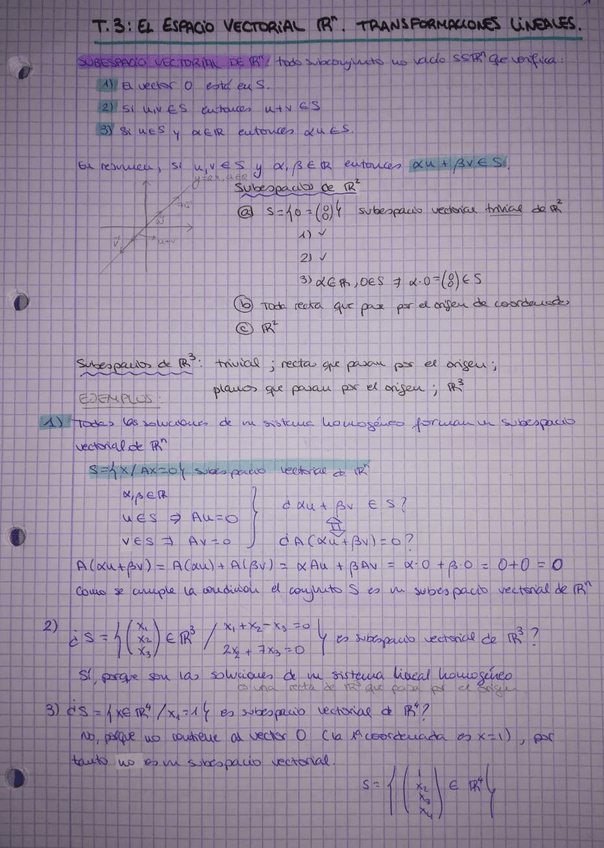 T.3: EL ESPACIO VECTORIAL ℝⁿ. TRANSFORMACIONES LINEALES.
SUBESPACIO VECTORIAL DE ℝⁿ / todo subconjunto no vacío S⊆ℝⁿ que verifica:
1) El vector 0 está en S.
2) Si u,v ∈ S entonces u+v ∈ S
3) Si u∈S y α∈ℝ entonces αu ∈ S.
En resumen, si u,v ∈ S y α,β ∈ ℝ entonces αu + βv ∈ S.
Subespacios de ℝ²
ⓐ S={0=(0 0)} subespacio vectorial trivial de ℝ²
1) ✓
2) ✓
3) α∈ℝ, 0∈S ⇒ α·0=(0 0) ∈ S
v
u+v
ⓑ Toda recta que pase por el origen de coordenadas
ⓒ ℝ²
Subespacios de ℝ³: trivial ; rectas que pasan por el origen ;
planos que pasan por el origen ; ℝ³
EJEMPLOS:
1) Todas las soluciones de un sistema homogéneo forman un subespacio
vectorial de ℝⁿ
S={x/Ax=0} subespacio vectorial de ℝⁿ
α,β∈ℝ
u∈S ⇒ Au=0
v∈S ⇒ Av=0
¿ αu + βv ∈ S ?
⇕
¿A(αu+βv)=0?
A(αu+βv) = A(αu)+A(βv) = αAu + βAv = α·0 + β·0 = 0+0 = 0
Como se cumple la condición el conjunto S es un subespacio vectorial de ℝⁿ
2) ¿S = {(x₁ x₂ x₃) ∈ ℝ³ / x₁+x₂-x₃=0 2x₂+7x₃=0} es subespacio vectorial de ℝ³?
Sí, porque son las soluciones de un sistema lineal homogéneo
es una recta de ℝ³ que pasa por el origen
3) ¿S={x∈ℝ⁴/x₁=1} es subespacio vectorial de ℝ⁴?
No, porque no contiene al vector 0 (la 1ª coordenada es x=1), por
tanto no es un subespacio vectorial.
S = {(1 x₂ x₃ x₄) ∈ ℝ⁴}